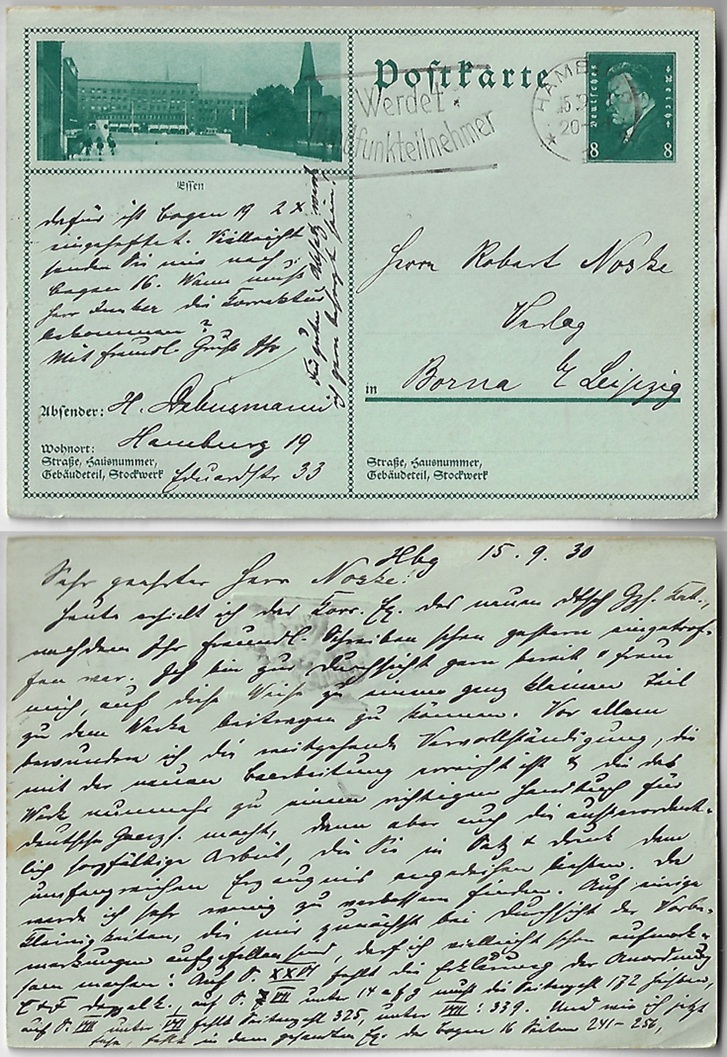 Postkarte
Werdet
Rundfunkteilnehmer
HAMB
Deutsches Reich
8 8
Essen
dafür ist Bogen 19 2 x
eingeheftet. Vielleicht
senden Sie mir noch
Bogen 16. Wann muß
Herr die Korrektur
bekommen?
Mit freundl. Gruß Ihr
Für guten Absatz will
ich gern besorgt sein!
Absender: H. Debusmann
Hamburg 19
Wohnort:
Straße, Hausnummer,
Gebäudeteil, Stockwerk
Eduardstr 33
Herrn Robert Noske
Verlag
in Borna b/ Leipzig
Straße, Hausnummer,
Gebäudeteil, Stockwerk
Hbg 15.9.30
Sehr geehrter Herr Noske!
heute erhielt ich das Korr. Ex. des neuen dtsch
nachdem Ihr freundl. Schreiben schon gestern eingetrof-
fen war. Ich bin zur Durchsicht gern bereit & freue
mich, auf diese Weise zu einem ganz kleinen Teil
zu dem Werke beitragen zu können. Vor allem
bewundere ich die weitgehende Vervollständigung, die
mit der neuen Bearbeitung erreicht ist & die das
Werk nunmehr zu einem richtigen Handbuch für
deutsche macht, dann aber auch die außerordent-
lich sorgfältige Arbeit, die Sie in Satz & Druck dem
umfangreichen Erzeugnis angedeihen ließen. Da
werde ich sehr wenig zu verbessern finden. Auf einige
Kleinigkeiten, die mir zunächst bei Durchsicht der Vorbe-
merkungen aufgefallen sind, darf ich vielleicht schon aufmerk-
sam machen: Auf S. XXVI fehlt die Erklärung der Anordnung
auf S. VII unter 14 muß die Seitenzahl 172
auf S. VIII unter VII fehlt Seitenzahl 325, unter VIII: 339. Und wie ich jetzt
sehe, fehlt in dem gesamten Ex. der Bogen 16 Seiten 241–256,